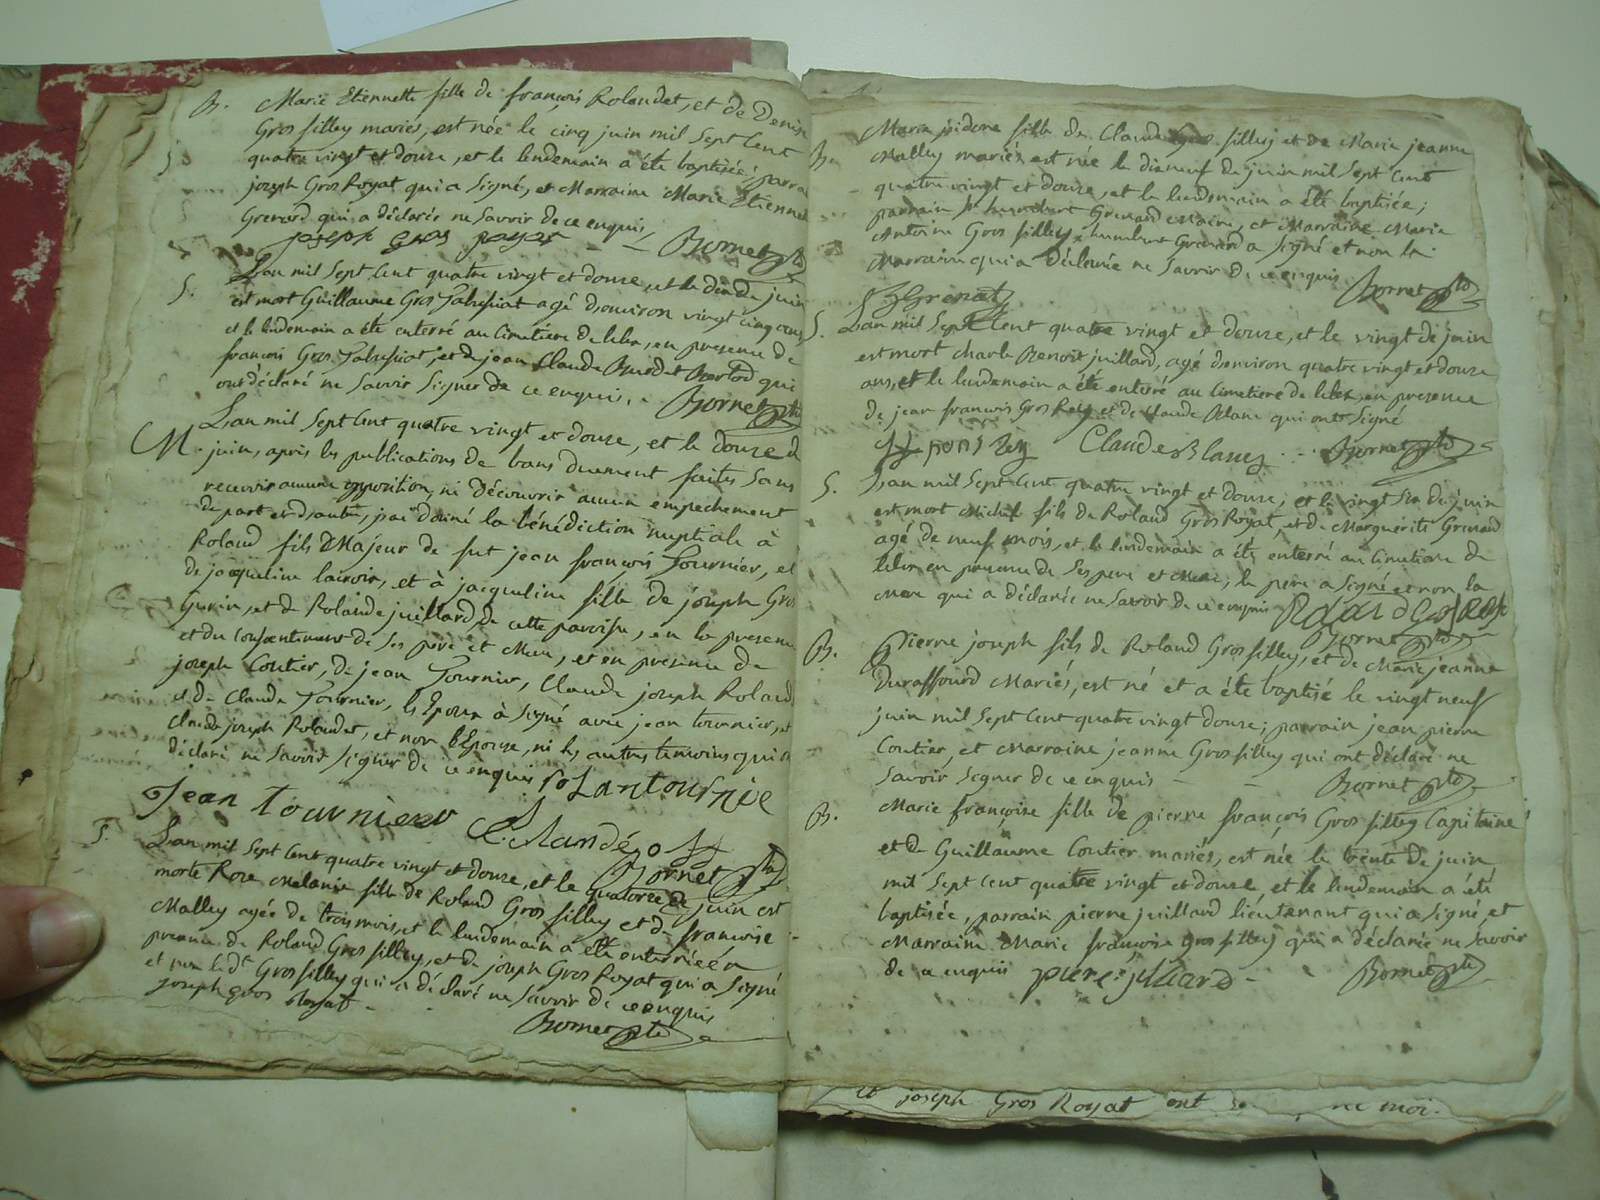 B. Marie Etiennette fille de françois Rolandet, et de Denise
Gros fillley mariés, est née le cinq juin mil sept cent
quatre vingt et douze, et le lendemain a été baptisée; parrain
joseph Gros Royat qui a signé, et Marraine Marie Etiennette
Grenard qui a déclarée ne savoir de ce enquis
joseph gros royat Bornet
S. L'an mil sept cent quatre vingt et douze et le dix de juin
est mort Guillaume Gros agé d'environ vingt cinq ans
et le lendemain a été enterré au Cimetiere de lelex, en presence de
françois Gros et de jean Claude Burdet qui
ont déclaré ne savoir signer de ce enquis. Bornet
M. L'an mil sept cent quatre vingt et douze, et le douze de
juin, après les publications de bans duement faites sans
recevoir aucune opposition, ni découvrir aucun empechement
de part et d'autre, j'ai donné la bénédiction nuptiale à
Roland fils Majeur de fut jean françois Tournier, et
de jacqueline lacroix, et à jacqueline fille de joseph Gros
Gurin, et de Rolande juillard de cette paroisse, en la presence
et du consentement de ses pere et Mere, et en presence de
joseph Coutier, de jean Tournier, Claude joseph Rolandet
et de Claude Tournier, les Epoux à signé avec jean tournier, et
Claude joseph Rolandet, et non l'Epouse, ni les autres temoins qui ont
déclaré ne savoir signer de ce enquis
Jean tournier
Bornet
S. L'an mil sept cent quatre vingt et douze, et le quatorze de juin est
morte Roze Melanie fille de Roland Gros filley et de françoise
Malley agée de trois mois, et le lendemain a été enterrée en
presence de Roland Gros filley, et de joseph Gros Royat qui a signé
et non le dt Gros filley qui a déclaré ne savoir de ce enquis
joseph gros Royat
Bornet
B. Marie jsidore fille de Claude Gros filley et de Marie jeanne
Malley mariés est née le dixneuf de juin mil sept cent
quatre vingt et douze, et le lendemain a été baptisée;
parrain humbert Grenard Maire, et Marraine Marie
Antoine Gros filley, humbert Grenard a signé et non la
Marraine qui a déclarée ne savoir de ce enquis Bornet
S. L'an mil sept cent quatre vingt et douze, et le vingt de juin
est mort Charle Benoit juillard, agé d'environ quatre vingt et douze
ans, et le lendemain a été enterré au Cimetiere de lelex, en presence
de jean françois Gros Rey et de Claude Blanc qui ont signé
Claude Blanc Bornet
S. L'an mil sept cent quatre vingt et douze, et le vingt six de juin
est mort Michel fils de Roland Gros Royat, et de Marguerite Grenard
agé de neuf mois, et le lendemain a été enterré au Cimetiere de
lelex en presence de ses pere et Mere, le pere a signé et non la
Mere qui a déclarée ne savoir de ce enquis
Bornet
B. Pierre joseph fils de Roland Gros filley, et de Marie jeanne
Duraffourd Mariés, est né et a été baptisé le vingt neuf
juin mil sept cent quatre vingt douze; parrain jean pierre
Coutier, et Marraine jeanne Gros filley qui ont déclaré ne
savoir signer de ce enquis - Bornet
B. Marie françoise fille de pierre françois Gros filley Capitaine
et de Guillaume Coutier mariés, est née le trente de juin
mil sept cent quatre vingt et douze et le lendemain a été
baptisée, parrain pierre juillard lieutenant qui a signé, et
Marraine Marie françoise Gros filley qui a déclarée ne savoir
de ce enquis piere juliard - Bornet
et joseph Gros Royat ont moi.